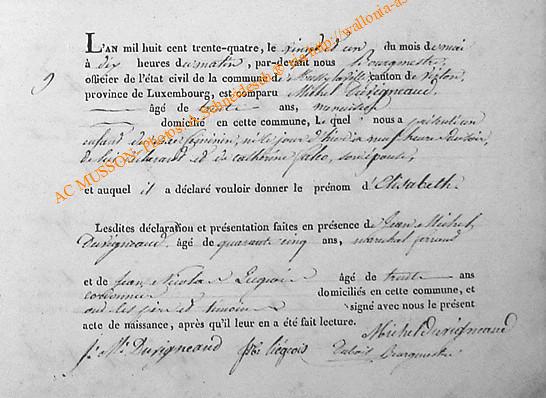 9
L'AN mil huit cent trente-quatre, le vingt et un du mois de mai
à dix heures du matin, par-devant nous Bourgmestre,
officier de l'état civil de la commune de Mussy-la-ville canton de Virton,
province de Luxembourg, est comparu Michel Duvigneaud,
âgé de trente ans, menuisier
domicilié en cette commune, Lequel nous a présenté un
enfant du sexe féminin, né le jour d'hier à neuf heures du soir,
de lui déclarant et de catherine son épouse,
et auquel il a déclaré vouloir donner le prénom d'Elisabeth.
Lesdites déclaration et présentation faites en présence de Jean Michel
Duvigneaud, âgé de quarante cinq ans, maréchal ferrand
et de Jean Nicolas âgé de trente ans
cordonnier domiciliés en cette commune, et
ont les père et témoins signé avec nous le présent
acte de naissance, après qu'il leur en a été fait lecture.
Michel Duvigneaud
j. M. Duvigneaud liégeois Bourgmestre
AC MUSSON- Photos A.Schneidesch © via http://wallonia-as